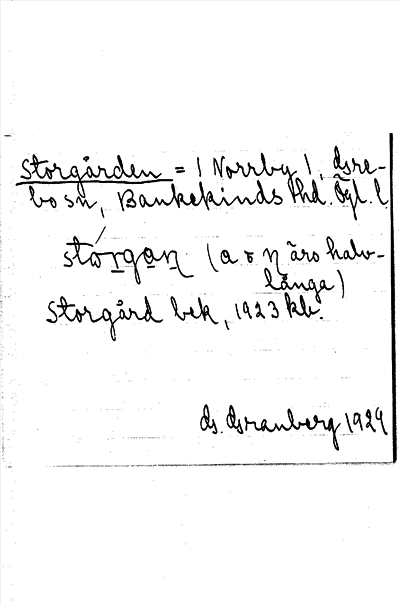 Storgården = / Norrby /, Gre-
bo sn, Bankekinds hd. Ögl. l.
(a o ŋ äro halv-
långa)
Storgård bek, 1923 kb.
G. Granberg 1924